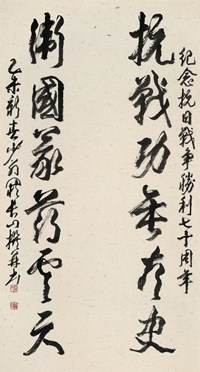 紀念抗日戰争勝利七十周年
抗戰功垂青史
衛國義薄雲天
乙未新春少翁撰并书